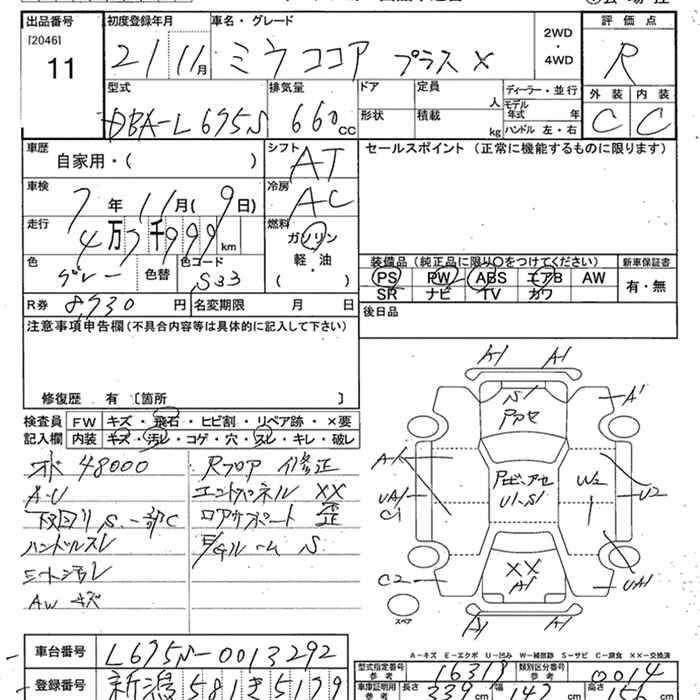 出品番号 初度登録年月 車名・グレード 評価点
[2046]
11
21 11月 ミラココア プラス X
2WD・4WD
R
型式 排気量 ドア 定員 人 ディーラー・並行
外装 内装
DBA-L675S 660cc 形状 積載 kg モデル年式 年
ハンドル 左・右
C C
車歴 シフト セールスポイント (正常に機能するものに限ります)
自家用・( ) AT
車検 冷房
7年 11月(9日) AC
走行 燃料
4万7千999km ガソリン
軽・油
( )
色 色替 色コード
グレー S33
装備品(純正品に限り○をつけてください) 新車保証書
PS PW ABS エアB AW
SR ナビ TV カワ
有・無
R券 8,930円 名変期限 月 日
後日品
注意事項申告欄(不具合内容等は具体的に記入して下さい)
修復歴 有 〔箇所 〕
検査員 FW キズ・飛石・ヒビ割・リペア跡・×要
記入欄 内装 キズ・汚レ・コゲ・穴・スレ・キレ・破レ
48000
A・U
下回リ S、一部C
ハンドルスレ
シート汚レ
AW キズ
Rフロア 修正
エンドパネル XX
ロアサポート 歪
S
A1 A1
S1
A1
U2
W2
UA1
C1
U1、S1
C2
XX
A1
UA1
A1 A1
スペア
A-キズ E-エクボ U-凹み W-補修跡 S-サビ C-腐食 XX-交換済
車台番号 L675S-0013292
登録番号 新潟581き5179
型式指定番号 参考 16318 類別区分番号 参考 0014
車庫証明用 参考 長さ 339cm 幅 147cm 高さ cm